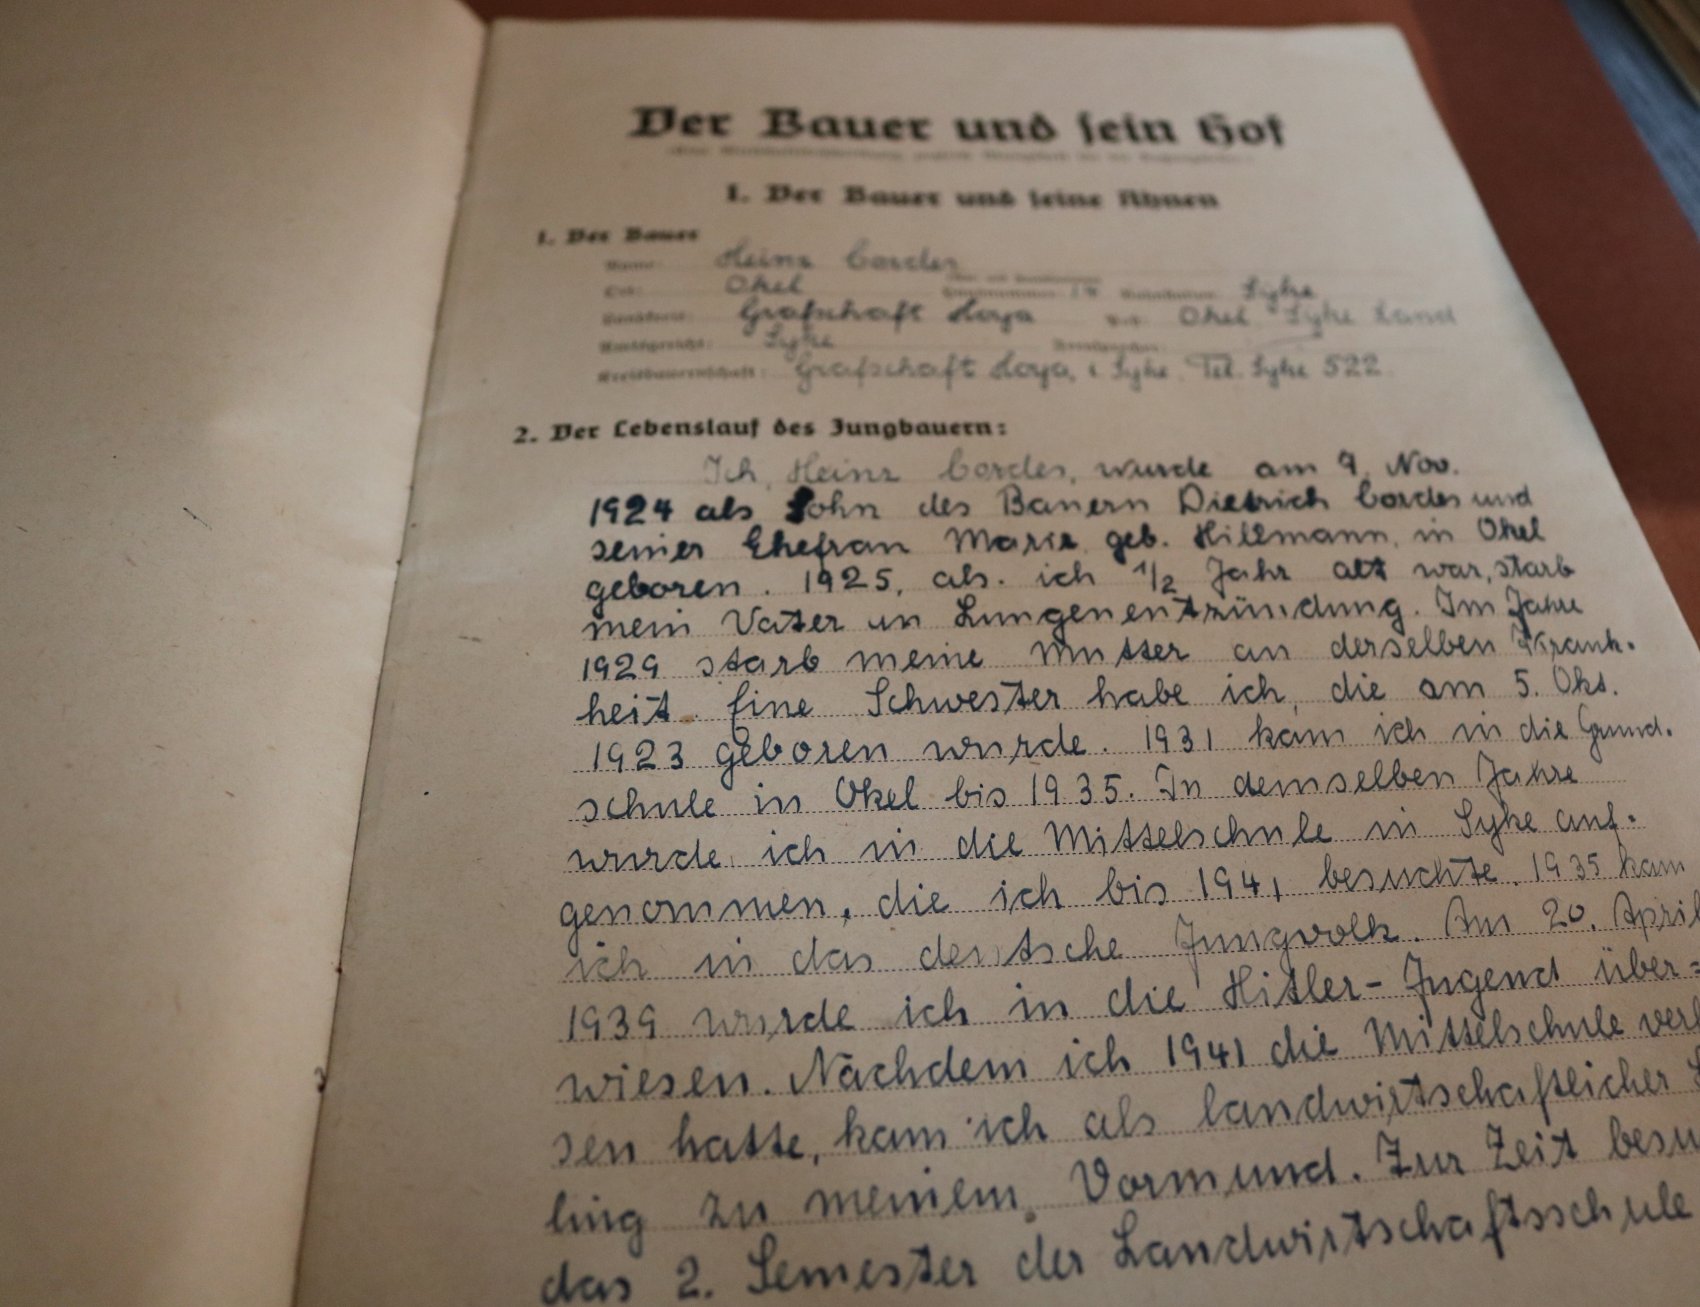 Der Bauer und sein Hof
I. Der Bauer und seine Ahnen
1. Der Bauer
Name: Heinz Cordes
Ort: Okel Syke
Grafschaft Hoya Okel Syke Land
Amtsgericht: Syke
Kreisbauernschaft: Grafschaft Hoya, i. Syke. Tel. Syke 522
2. Der Lebenslauf des Jungbauern:
Ich, Heinz Cordes, wurde am 9. Nov.
1924 als Sohn des Bauern Dietrich Cordes und
seiner Ehefrau Marie geb. Hillmann, in Okel
geboren. 1925, als ich 1/2 Jahr alt war, starb
mein Vater an Lungenentzündung. Im Jahre
1929 starb meine Mutter an derselben Krank-
heit. Eine Schwester habe ich, die am 5. Okt.
1923 geboren wurde. 1931 kam ich in die Grund-
schule in Okel bis 1935. In demselben Jahre
wurde ich in die Mittelschule in Syke auf-
genommen, die ich bis 1941 besuchte. 1935 kam
ich in das deutsche Jungvolk. Am 20. April
1939 wurde ich in die Hitler-Jugend über=
wiesen. Nachdem ich 1941 die Mittelschule verl
sen hatte, kam ich als landwirtschaftlicher
ling zu meinem Vormund. Zur Zeit besu
das 2. Semester der Landwirtschaftsschule